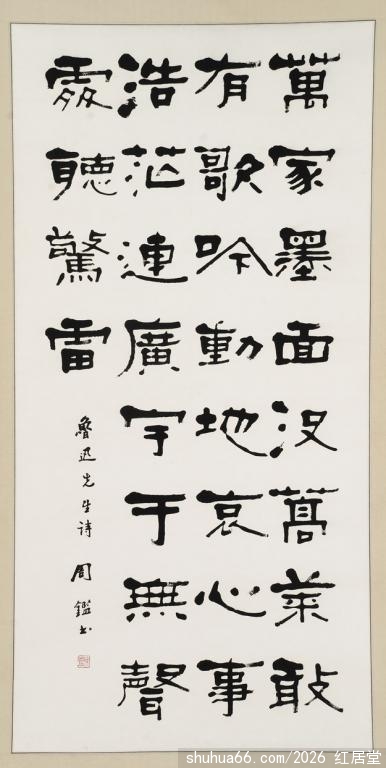 萬家墨面沒蒿萊敢
有歌吟動地哀心事
浩茫連廣宇于無聲
處聽驚雷
魯迅先生诗 周鑑书
shuhua66.com/2026 红居堂